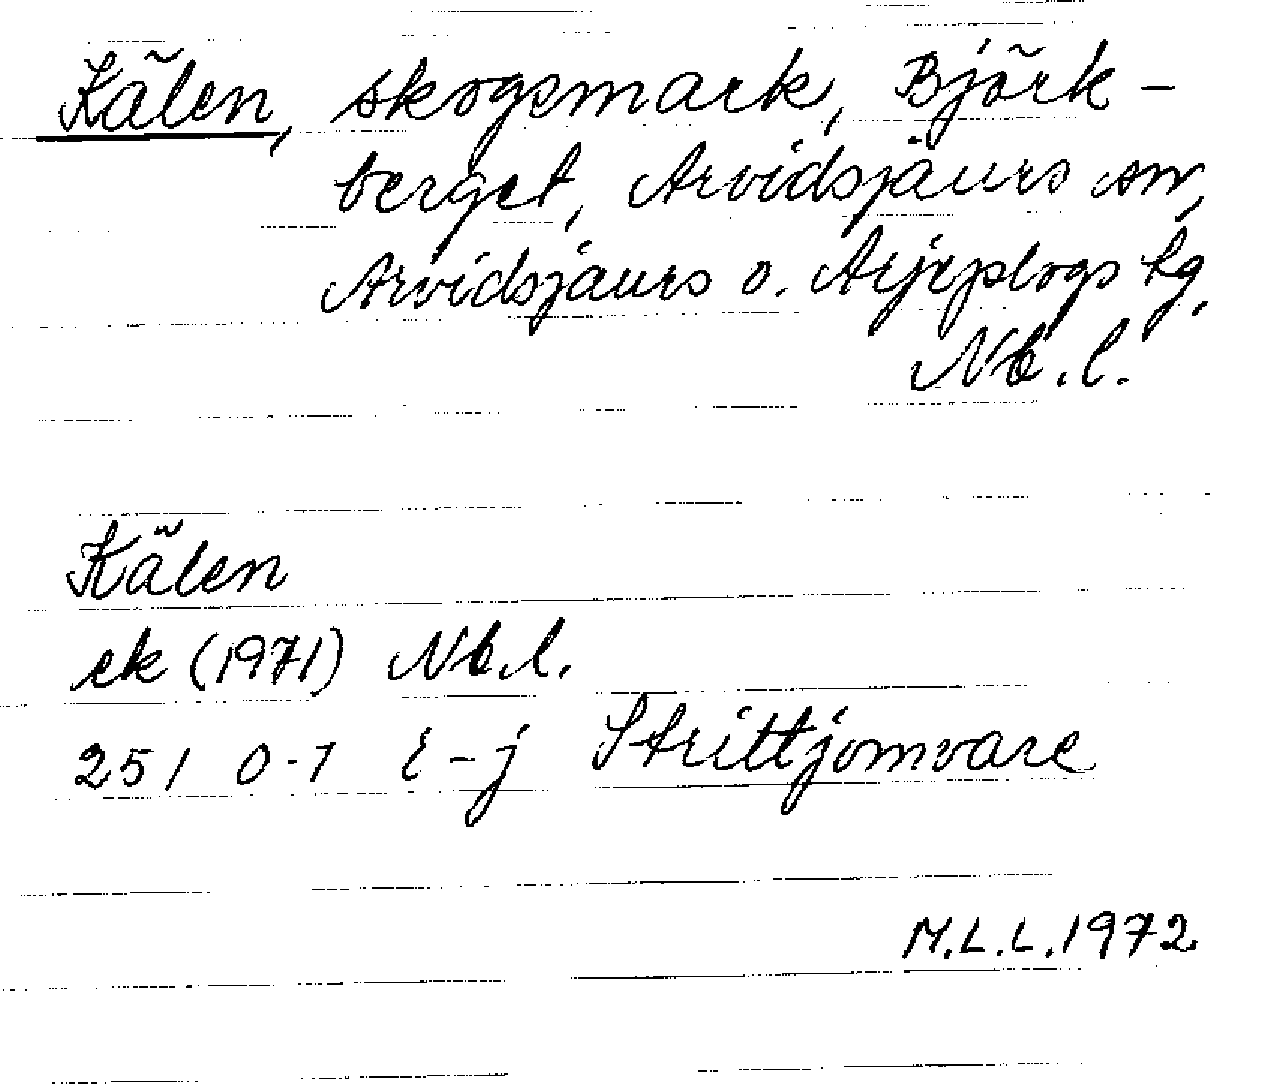 Kälen, skogsmark, Björk-
berget, Arvidsjaurs sn,
Arvidsjaurs o. Arjeplogs tg,
Nb.l.
Kälen
ek (1971) Nb.l.
251 0-1 i-j Strittjomvare
M.L.L.1972